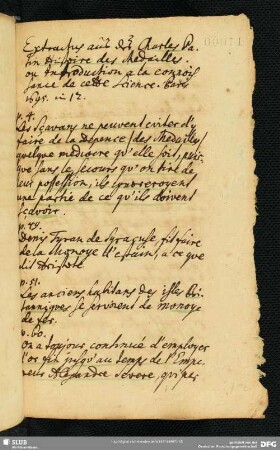 Extractus aus des Charles Pa-
tin Histoire des Medailles.
ou Introduction a la connois-
sance de cette science. Paris
1695. in 12.
p. 4.
Les sçavans ne peuvent eviter d'y
faire de la dépence (des Medailles)
quelque mediocre qu'elle soit, puis-
que sans le secours qu'on tire de
leur possession, ils
une partie de ce qu'ils doivent
sçavoir.
Denis Tyran de Syracuse fit faire
de la Monoye d'Estain, a ce que
dit Aristote
p. 51.
Les anciens habitans des isles Bri-
tanniques se servirent de monoye
de fer.
p. 60.
On a toujours continué d'employer
l'or fin jusqu'au temps de l'Empe-
reur Alexandre Severe, qui per
SLUB
DFG